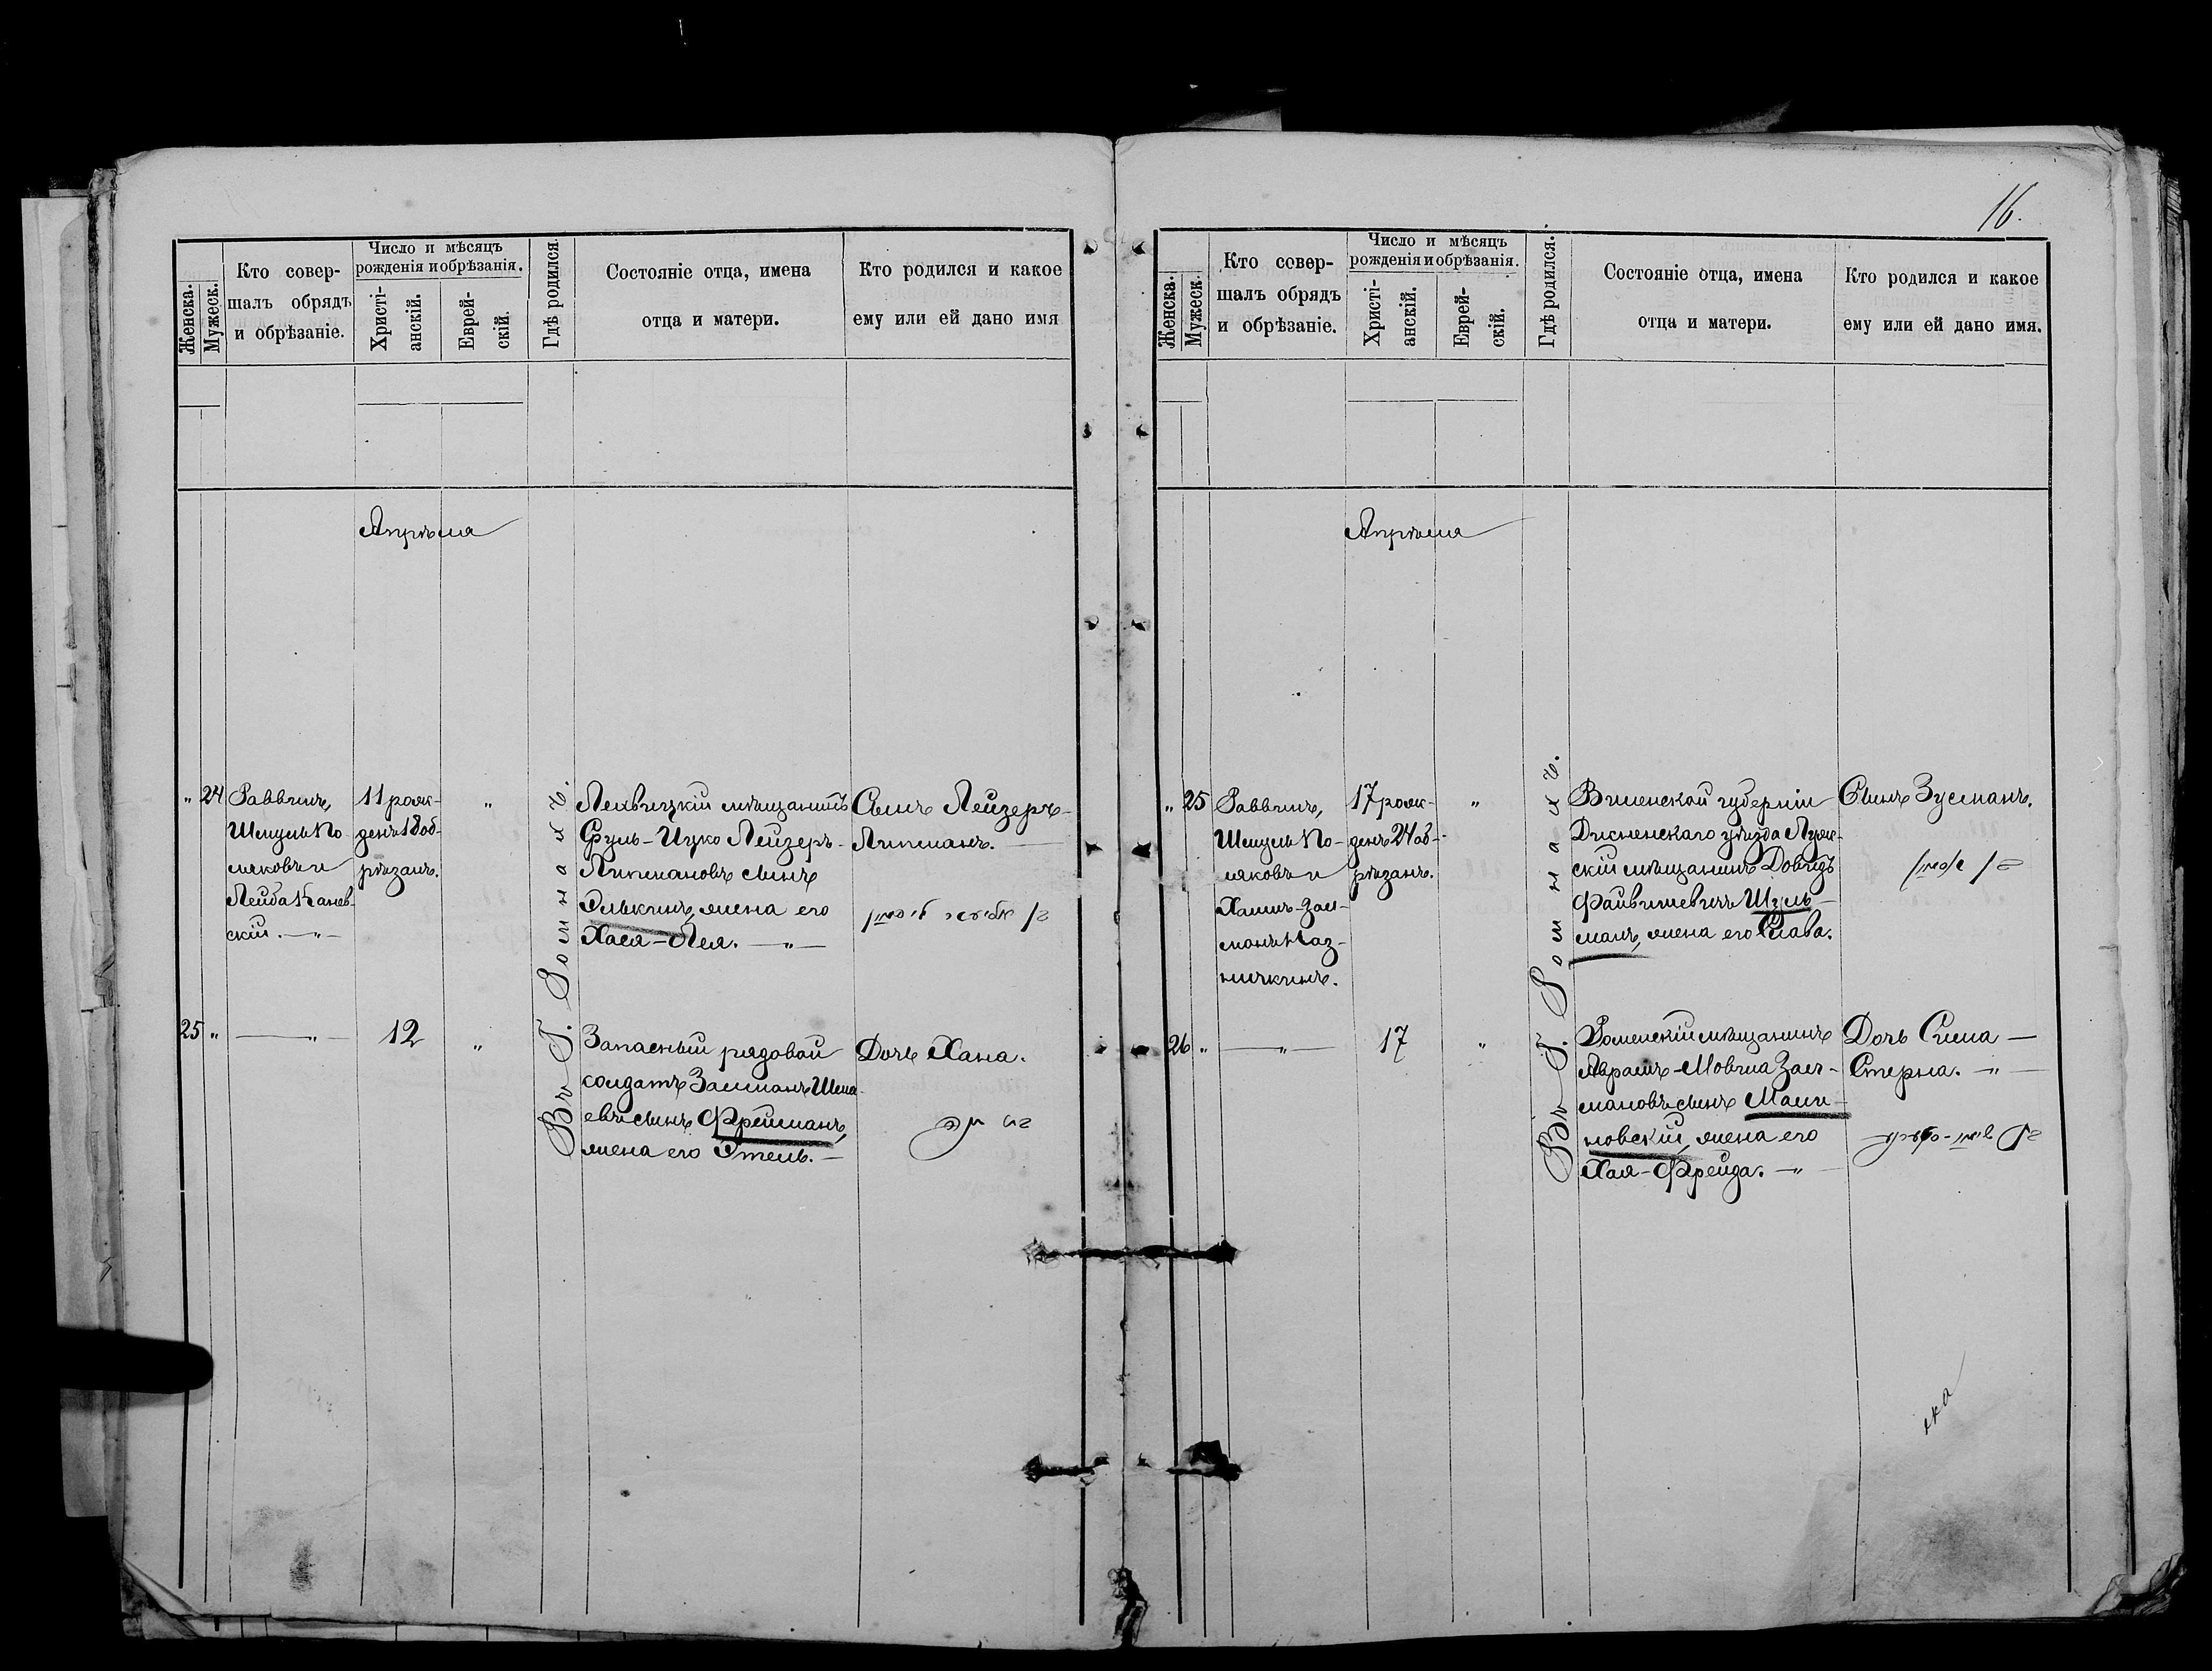 16.
Женска.
Мужеск.
Кто совер-
шалъ обрядъ
и обрѣзаніе.
Число и мѣсяцъ
рожденія и обрѣзанія.
Христі-
анскій.
Еврей-
скій.
Гдѣ родился.
Состояніе отца, имена
отца и матери.
Кто родился и какое
ему или ей дано имя
Апрѣля
" 24
Раввинъ,
Шмуль По-
ляковъ и
Лейба Канев-
скій. — " —
11 рож-
денъ 18 об-
рѣзанъ.
"
Въ Г. Ромнахъ.
Лохвицкій мѣщанинъ
Сруль-Ицко Лейзеръ-
Липмановъ сынъ
Элькинъ, жена его
Хася-Лея. — " —
Сынъ Лейзеръ-
Липманъ. —
25 "
— " —
12
"
Запасный рядовой
солдатъ Залманъ Шма-
евъ сынъ Фрейманъ,
жена его Этель. —
Дочь Хана.
בת חנה
Женска.
Мужеск.
Кто совер-
шалъ обрядъ
и обрѣзаніе.
Число и мѣсяцъ
рожденія и обрѣзанія.
Христі-
анскій.
Еврей-
скій.
Гдѣ родился.
Состояніе отца, имена
отца и матери.
Кто родился и какое
ему или ей дано имя.
Апрѣля
" 25
Раввинъ,
Шмуль По-
ляковъ и
Хаимъ-Зал-
манъ
17 рож-
денъ 24 об-
рѣзанъ.
"
Въ Г. Ромнахъ.
Виленской губерніи
Дисненскаго уѣзда Луж-
скій мѣщанинъ Довидъ
Файвишевичъ Шуль-
манъ, жена его Слава.
Сынъ Зусманъ.
בן זוסמן
26 "
— " —
17
"
Роменскій мѣщанинъ
Абрамъ-Мовша Зал-
мановъ сынъ Мали-
новскій, жена его
Хая-Фрейда. — "
Дочь Сима —
Стерна. — " —